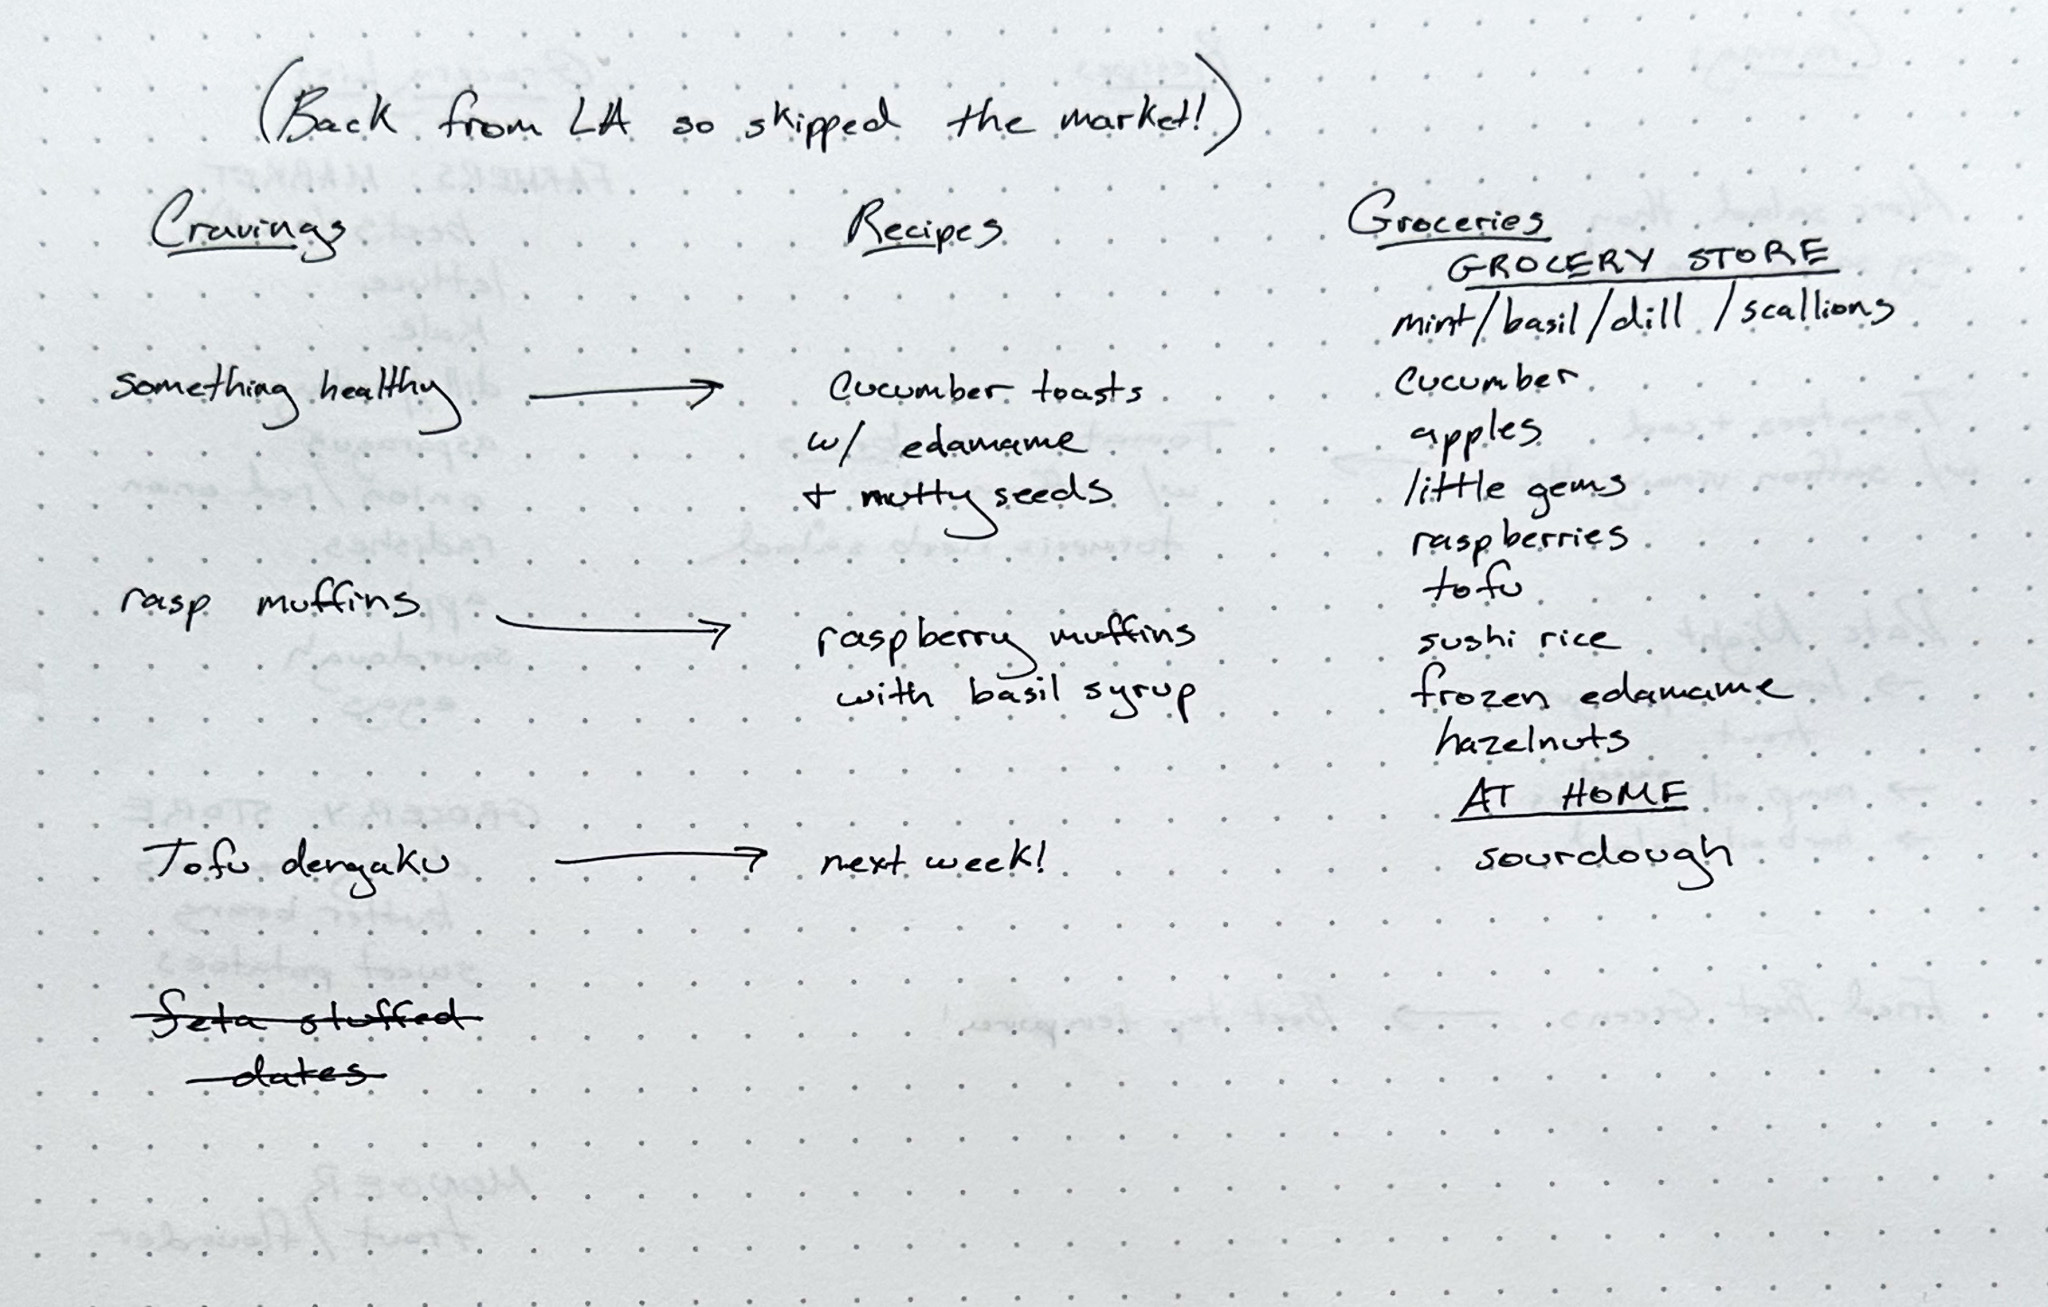 (Back from LA so skipped the market!)
Cravings
something healthy
rasp muffins
Tofu dengaku
feta stuffed
dates
Recipes
cucumber toasts
w/ edamame
+ nutty seeds
raspberry muffins
with basil syrup
next week!
Groceries
GROCERY STORE
mint/basil/dill/scallions
cucumber
apples
little gems
raspberries
tofu
sushi rice
frozen edamame
hazelnuts
AT HOME
sourdough